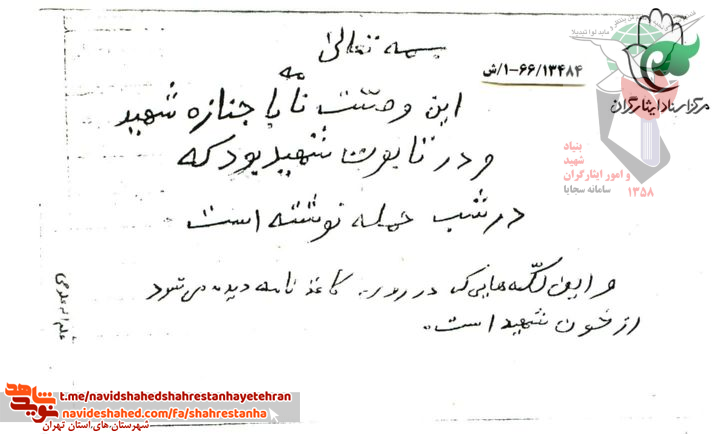 بسمه تعالی
۱-۶۶/۱۳۴۸۴/ش
این وصیت نامه با جنازه شهید
و در تابوت شهید بود که
در شب حمله نوشته است
و این لکه هایی که در روی کاغذ نامه دیده می شود
از خون شهید است.
مرکز اسناد ایثارگران
بنیاد
شهید
و امور ایثارگران
سامانه سجایا
۱۳۵۸
شاهد
نوید
t.me/navidshahedshahrestanhayetehran
navideshahed.com/fa/shahrestanha
شهرستان های استان تهران